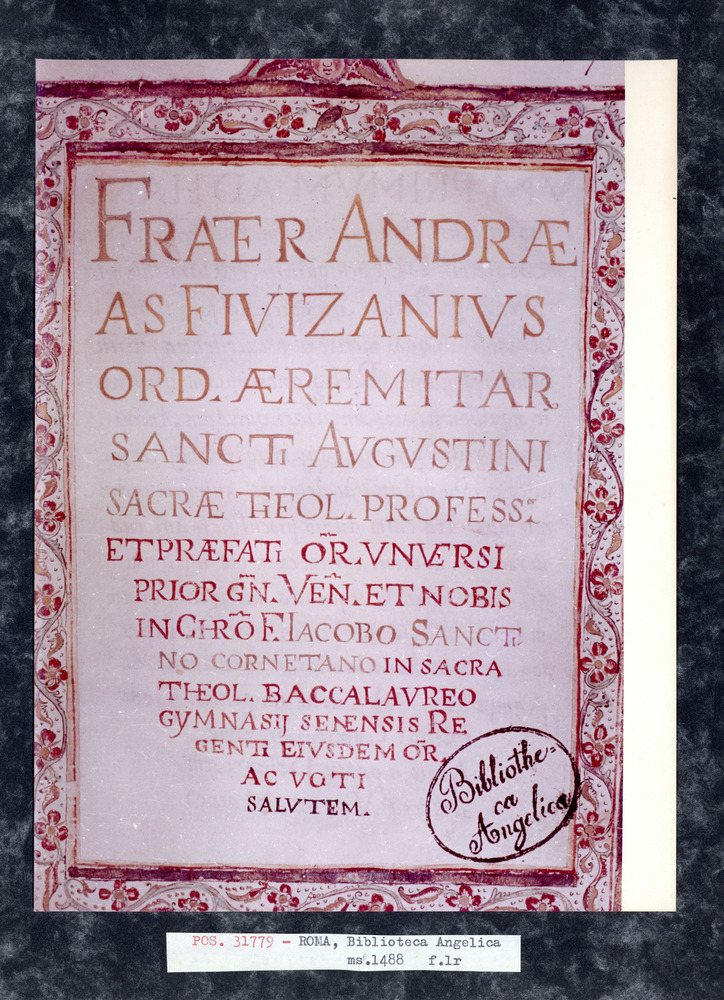 FRATER ANDRÆ
AS FIVIZANIVS
ORD. ÆREMITAR
SANCTI AVGVSTINI
SACRÆ THEOL. PROFESS.
ET PRÆFATI OR̃. VNIVERSI
PRIOR GÑ. VEÑ. ET NOBIS
IN CHRÕ F. IACOBO SANCTI
NO CORNETANO IN SACRA
THEOL. BACCALAVREO
GYMNASIJ SENENSIS RE
GENTI EIVSDEM OR̃.
AC VOTI
SALVTEM.
Bibliothe=
ca
Angelica
POS. 31779 - ROMA, Biblioteca Angelica
ms.1488 f.1r